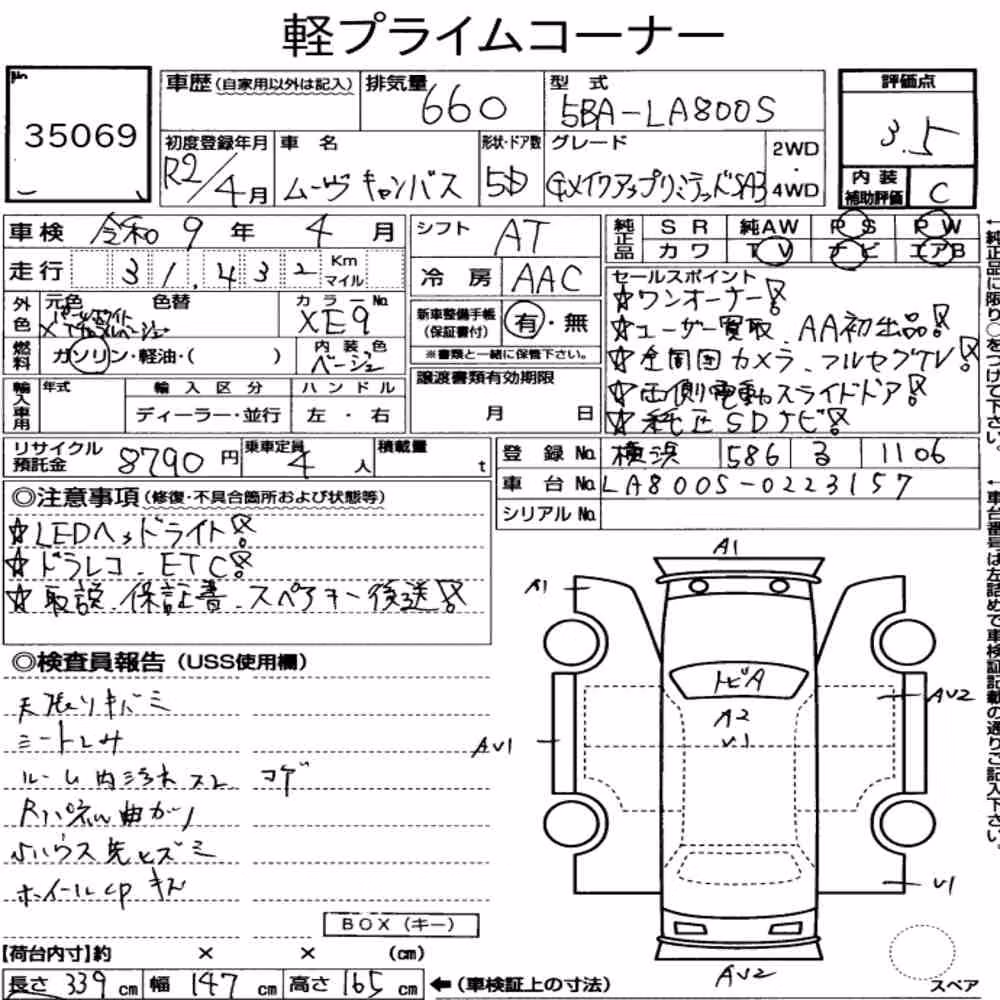 軽プライムコーナー
No
35069
車歴(自家用以外は記入) 排気量 660 型式 5BA-LA800S 評価点 3.5
初度登録年月 R2/4月 車名 ムーヴキャンバス 形状・ドア数 5D グレード GメイクアップリミテッドSAⅢ 2WD・4WD
内装補助評価 C
車検 令和9年4月 シフト AT 純正品 SR 純AW PS PW
走行 31,432 Km マイル 冷房 AAC カワ TV ナビ エアB
外色 元色 パールホワイト 色替 カラーNo. XE9
燃料 ガソリン・軽油・( ) 内装色 ベージュ
新車整備手帳(保証書付) 有・無
※書類と一緒に保管下さい。
セールスポイント
☆ワンオーナー!
☆ユーザー買取、AA初出品!
☆全周囲カメラ、フルセグTV!
☆両側電動スライドドア!
☆純正SDナビ!
輸入車用 年式 輸入区分 ハンドル
ディーラー・並行 左・右
譲渡書類有効期限
月 日
リサイクル預託金 8790円 乗車定員 4人 積載量 t
登録No. 横浜 586 る 1106
車台No. LA800S-0223157
シリアルNo.
◎注意事項(修復・不具合箇所および状態等)
☆LEDヘッドライト!
☆ドラレコ、ETC!
☆取説、保証書、スペアキー後送!
◎検査員報告(USS使用欄)
天張りキバミ
シートシミ
ルーム内汚れスレ コゲ
Rパネル曲がり
ホイールcpキズ
A1
A1
トビA
A2
V1
AV1
AV2
V1
AV2
BOX(キー)
【荷台内寸】約 × × (cm)
長さ 339 cm 幅 147 cm 高さ 165 cm ←(車検証上の寸法)
スペア
←純正品に限り○をつけて下さい。
←車台番号は左詰めで車検証記載の通りご記入下さい。